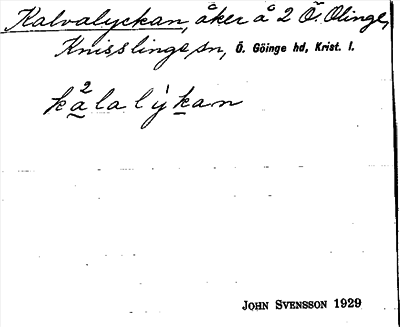 Kalvalyckan, åker å 2 Ö. Olinge,
Knisslinge sn, Ö. Göinge hd, Krist. l.
kàlalỳkan
JOHN SVENSSON 1929